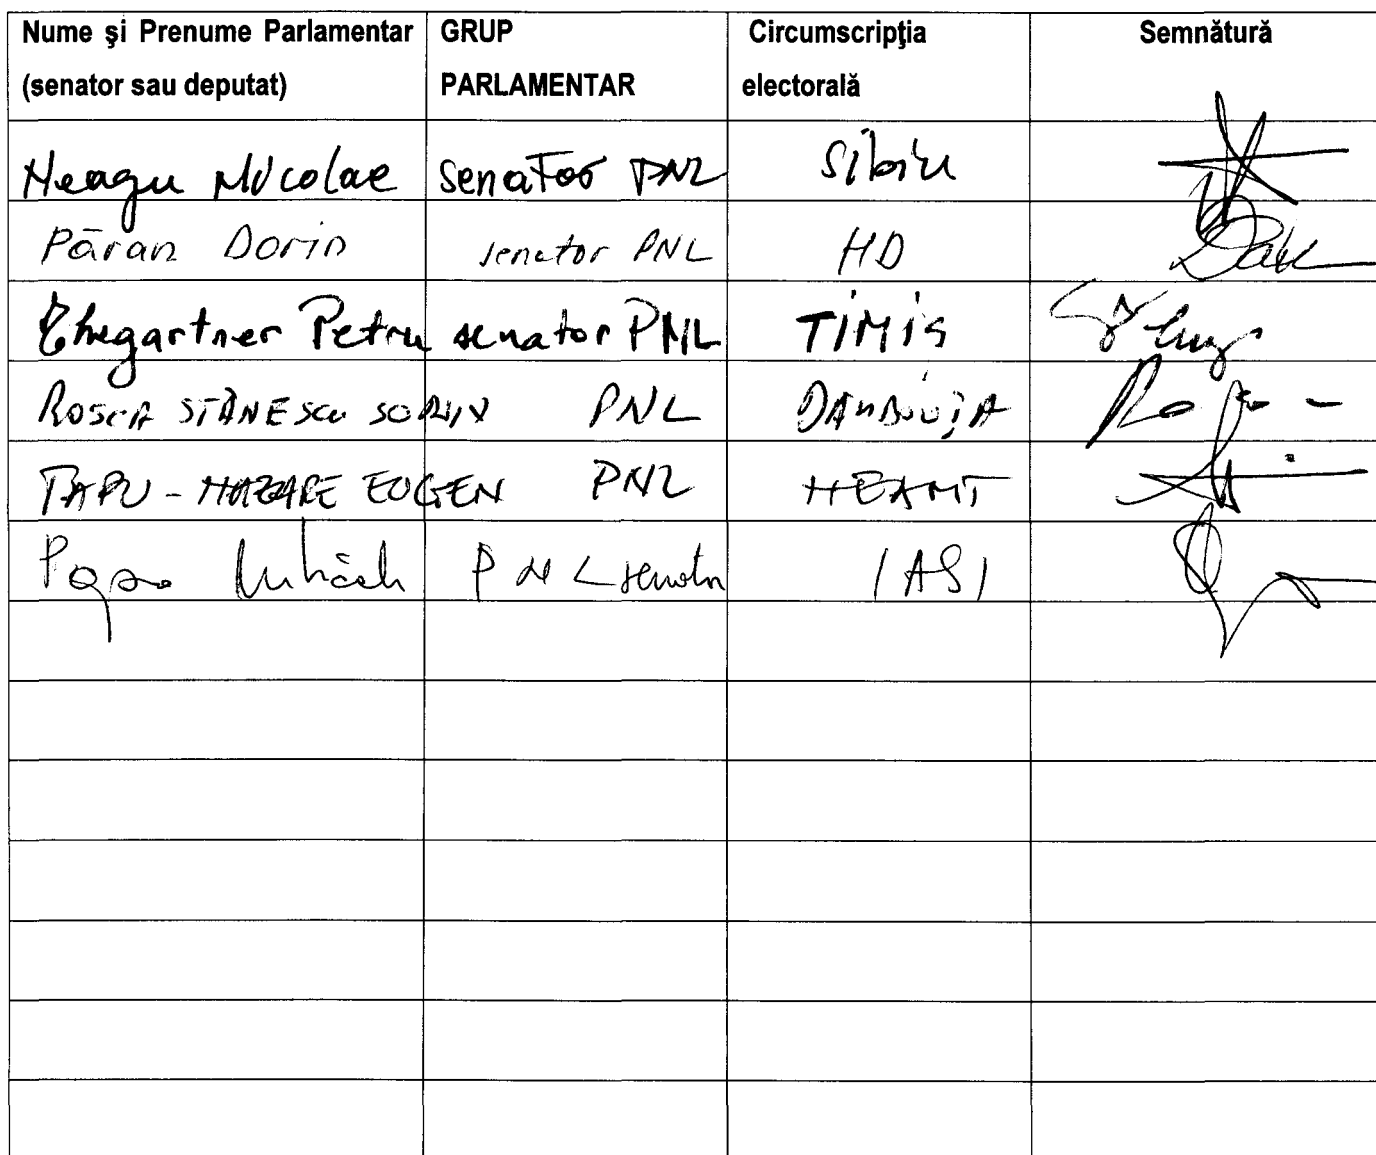 Nume şi Prenume Parlamentar (senator sau deputat) GRUP PARLAMENTAR Circumscripţia electorală Semnătură
Neagu Nicolae senator PNL Sibiu
Păran Dorin senator PNL HD
Ehegartner Petru senator PNL TIMIS
ROSCA STĂNESCU SORIN PNL DAMBOVIȚA
ȚAPU-NAZARE EUGEN PNL NEAMT
Popa Mihăiță PNL senator IASI